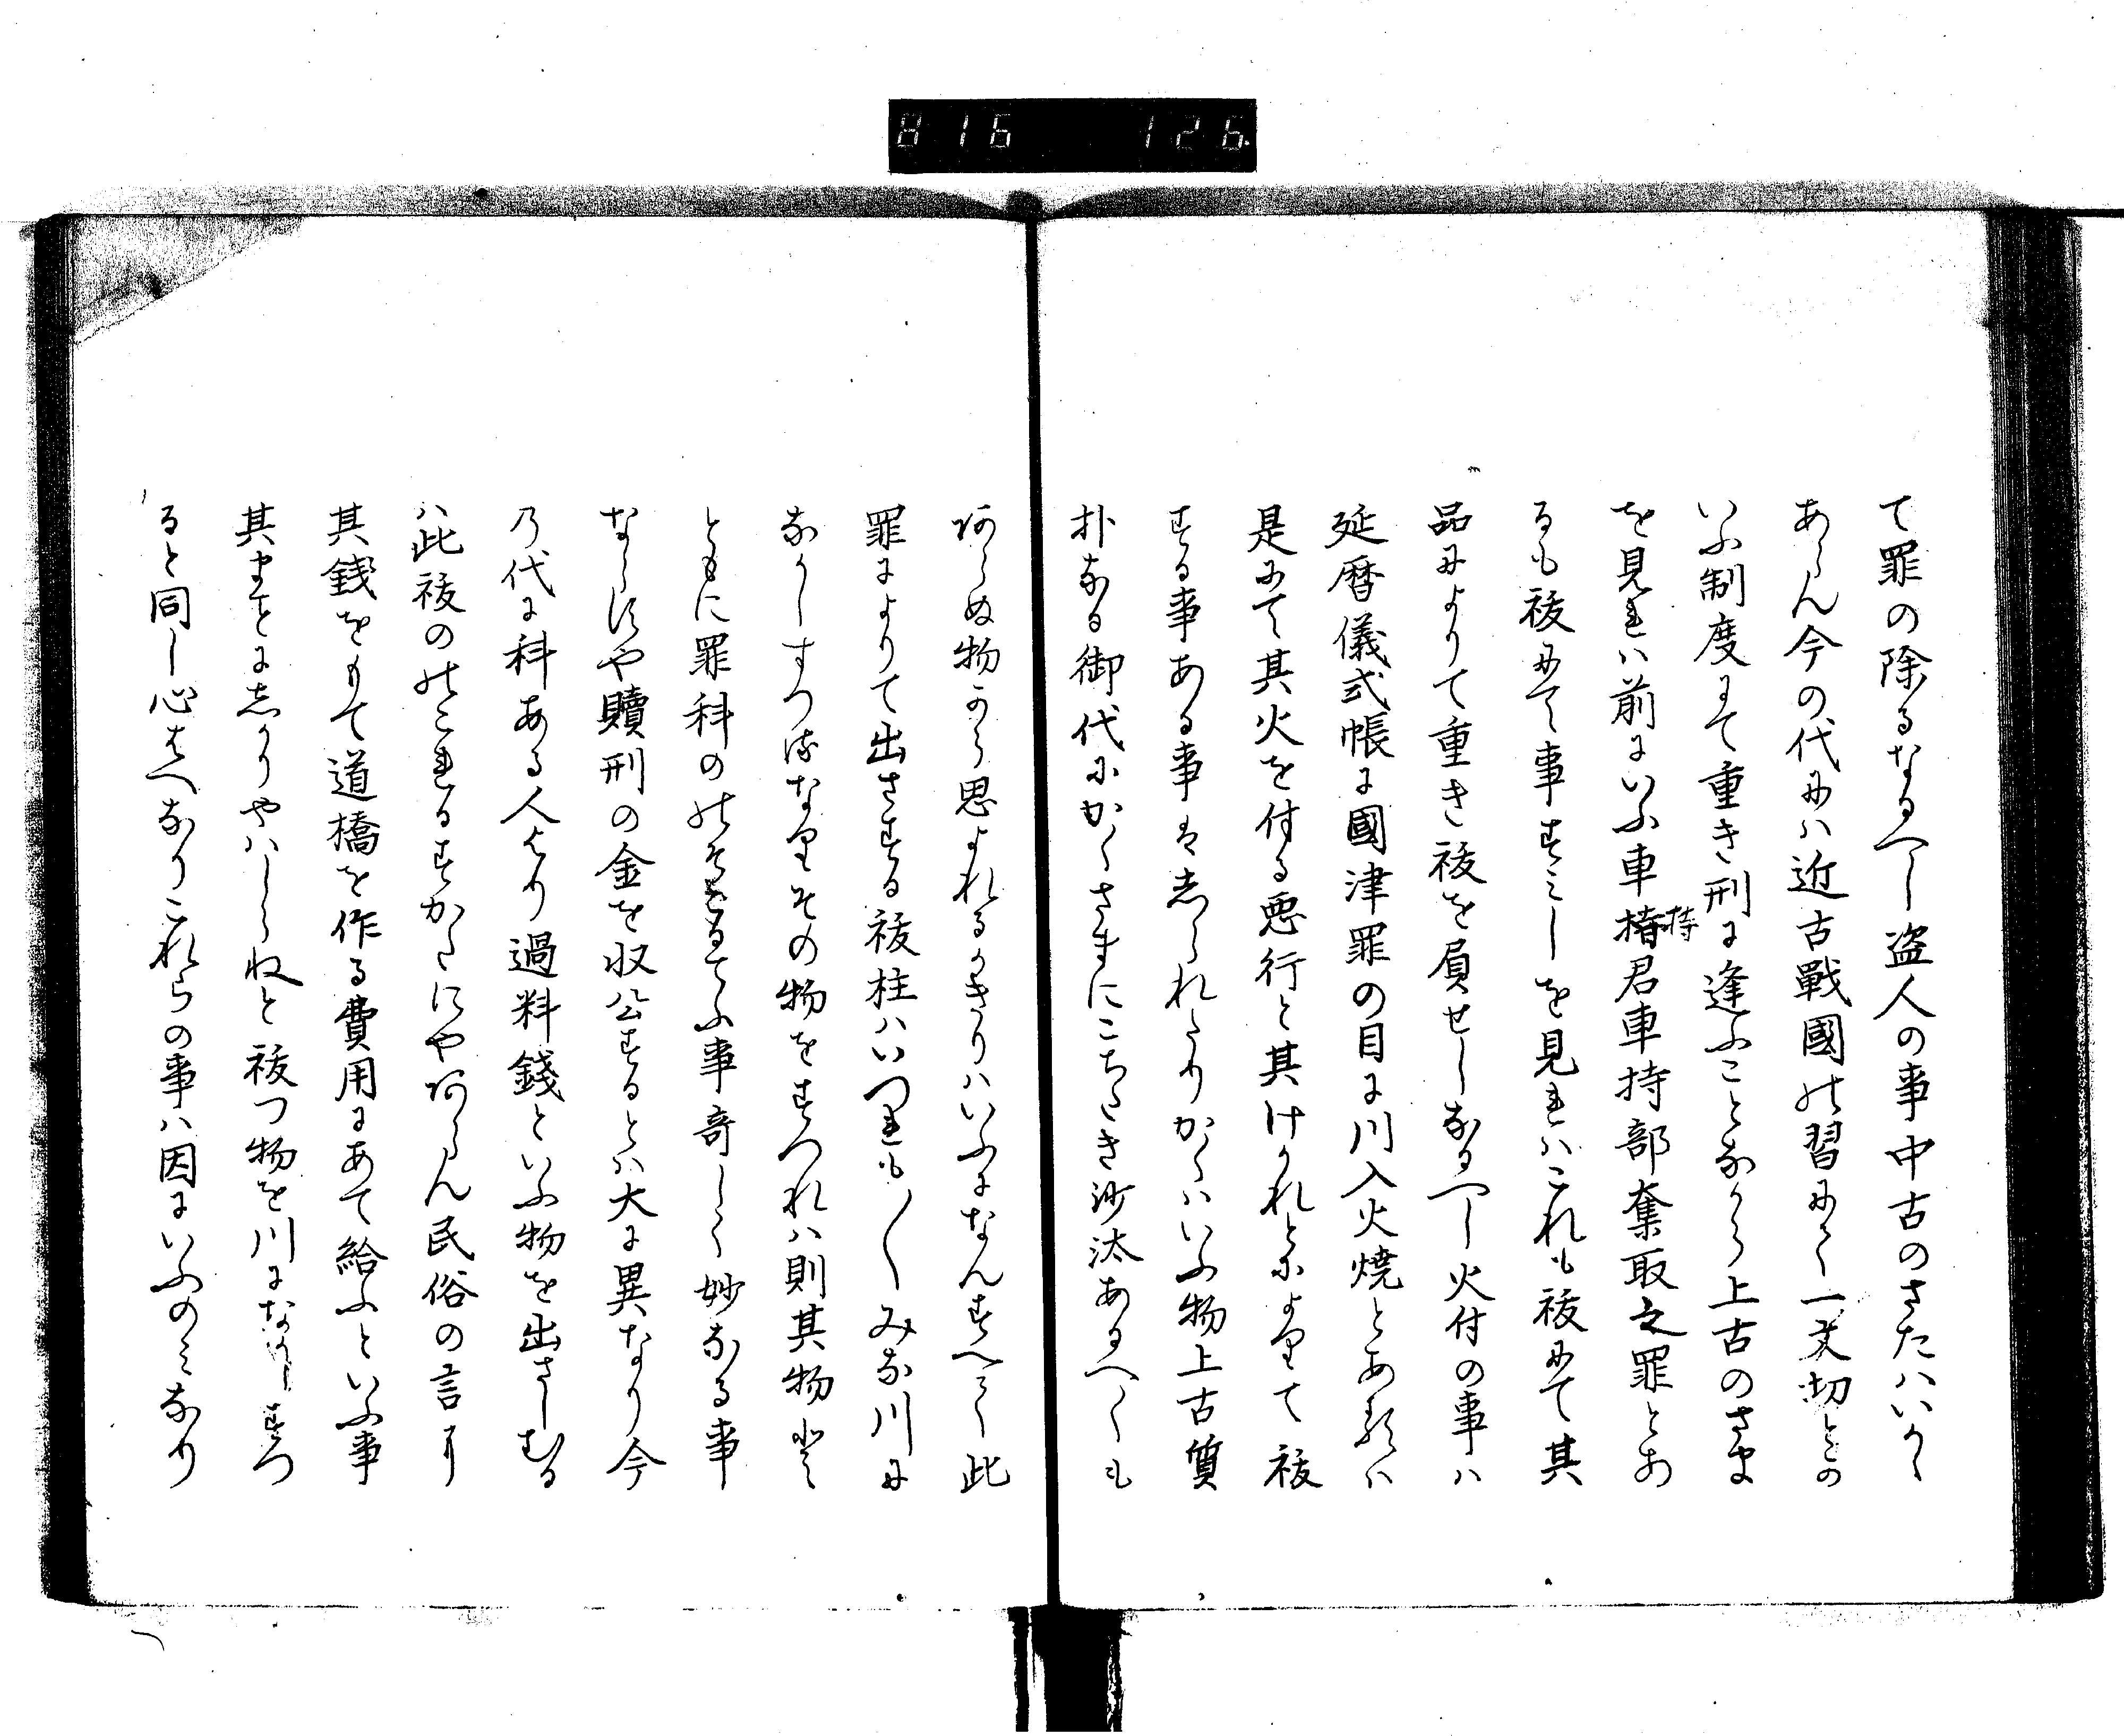 816 126
て罪の除るなるへし盗人の事中古のさたハいかゝ
あらん今の代にハ近古戰國の習にて一文切との
いふ制度にて重き刑に逢ふことなから上古のさま
を見れハ前にいふ車持君車持部奪取之罪とあ
持
るも祓にて事すみしを見れハこれも祓にて其
品によりて重き祓を負せしなるへし火付の事ハ
延暦儀式帳に國津罪の目に川入火焼とあるハ
是にて其火を付る悪行と其けかれとによりて祓
する事ある事もしられたりかくハいふ物上古質
朴なる御代にかくさまにこちたき沙汰あるへくも
あらぬ物から思よれるかきりハいふになんすへて此
罪によりて出さする祓柱ハいつれも〱みな川に
なかしすつるなりその物をすつれハ則其物と
ともに罪科のそこるてふ事奇しく妙なる事
ならすや贖刑の金を収公するとハ大に異なり今
の代に科ある人より過料錢といふ物を出さしむる
ハ此祓ののこれるすかたにやあらん民俗の言に
其錢をもて道橋を作る費用にあて給ふといふ事
其まことにしかりやハしらねと祓つ物を川になかしすつ
ると同し心はへなりこれらの事ハ因にいふのみなり